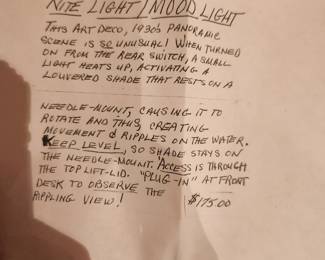 NITE LIGHT / MOOD LIGHT
THIS ART DECO, 1930'S PANORAMIC
SCENE IS SO UNUSUAL! WHEN TURNED
ON FROM THE REAR SWITCH, A SMALL
LIGHT HEATS UP, ACTIVATING A
LOUVERED SHADE THAT RESTS ON A
NEEDLE-MOUNT, CAUSING IT TO
ROTATE AND THUS, CREATING
MOVEMENT & RIPPLES ON THE WATER.
KEEP LEVEL, SO SHADE STAYS ON
THE NEEDLE-MOUNT. ACCESS IS THROUGH
THE TOP LIFT-LID. "PLUG-IN" AT FRONT
DESK TO OBSERVE THE
RIPPLING VIEW! $175.00